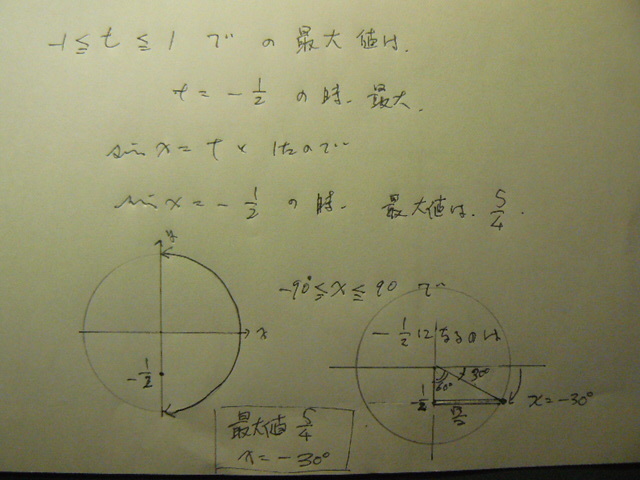 -1 ≦ t ≦ 1 で の 最大値は、
t = - 1/2 の時、最大、
sin x = t と したので
sin x = - 1/2 の 時、 最大値は、 5/4 .
y
x
- 1/2
-90° ≦ x ≦ 90 で
- 1/2 になるのは
30°
60°
- 1/2
√3/2
x = -30°
最大値 5/4
x = -30°